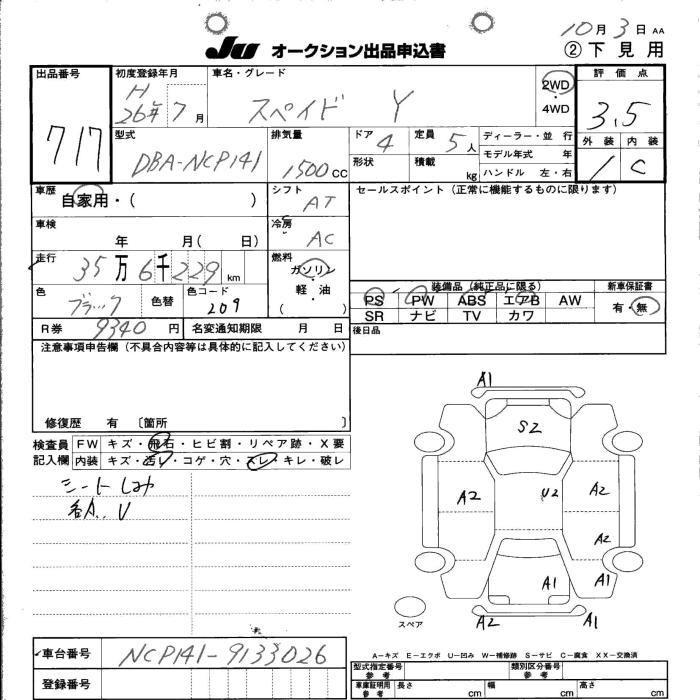 10月3日 AA
JU オークション出品申込書 ②下見用
出品番号 初度登録年月 車名・グレード 評価点
H 26年7月 スペイド Y 2WD 4WD 3.5
717
型式 排気量 ドア 定員 ディーラー・並行 外装 内装
DBA-NCP141 1500cc 4 5人 モデル年式 年 1 C
形状 積載 kg ハンドル 左・右
車歴 シフト セールスポイント(正常に機能するものに限ります)
自家用・( ) AT
車検 冷房
年 月( 日) AC
走行 燃料
35万6千229km ガソリン
軽・油
( )
装備品(純正品に限る) 新車保証書
色 色替 色コード PS PW ABS エアB AW 有・無
ブラック 209 SR ナビ TV カワ
R券 9340円 名変通知期限 月 日 後日品
注意事項申告欄(不具合内容等は具体的に記入してください)
修復歴 有 〔箇所 〕
検査員 FW キズ・飛石・ヒビ割・リペア跡・X要
記入欄 内装 キズ・汚レ・コゲ・穴・スレ・キレ・破レ
シート
U
A1
S2
A2 U2 A2
A2
A1 A1
スペア A2 A1
A-キズ E-エクボ U-凹み W-補修跡 S-サビ C-腐食 XX-交換済
車台番号 NCP141-9133026
登録番号
型式指定番号 参考 類別区分番号 参考
車庫証明用 参考 長さ cm 幅 cm 高さ cm